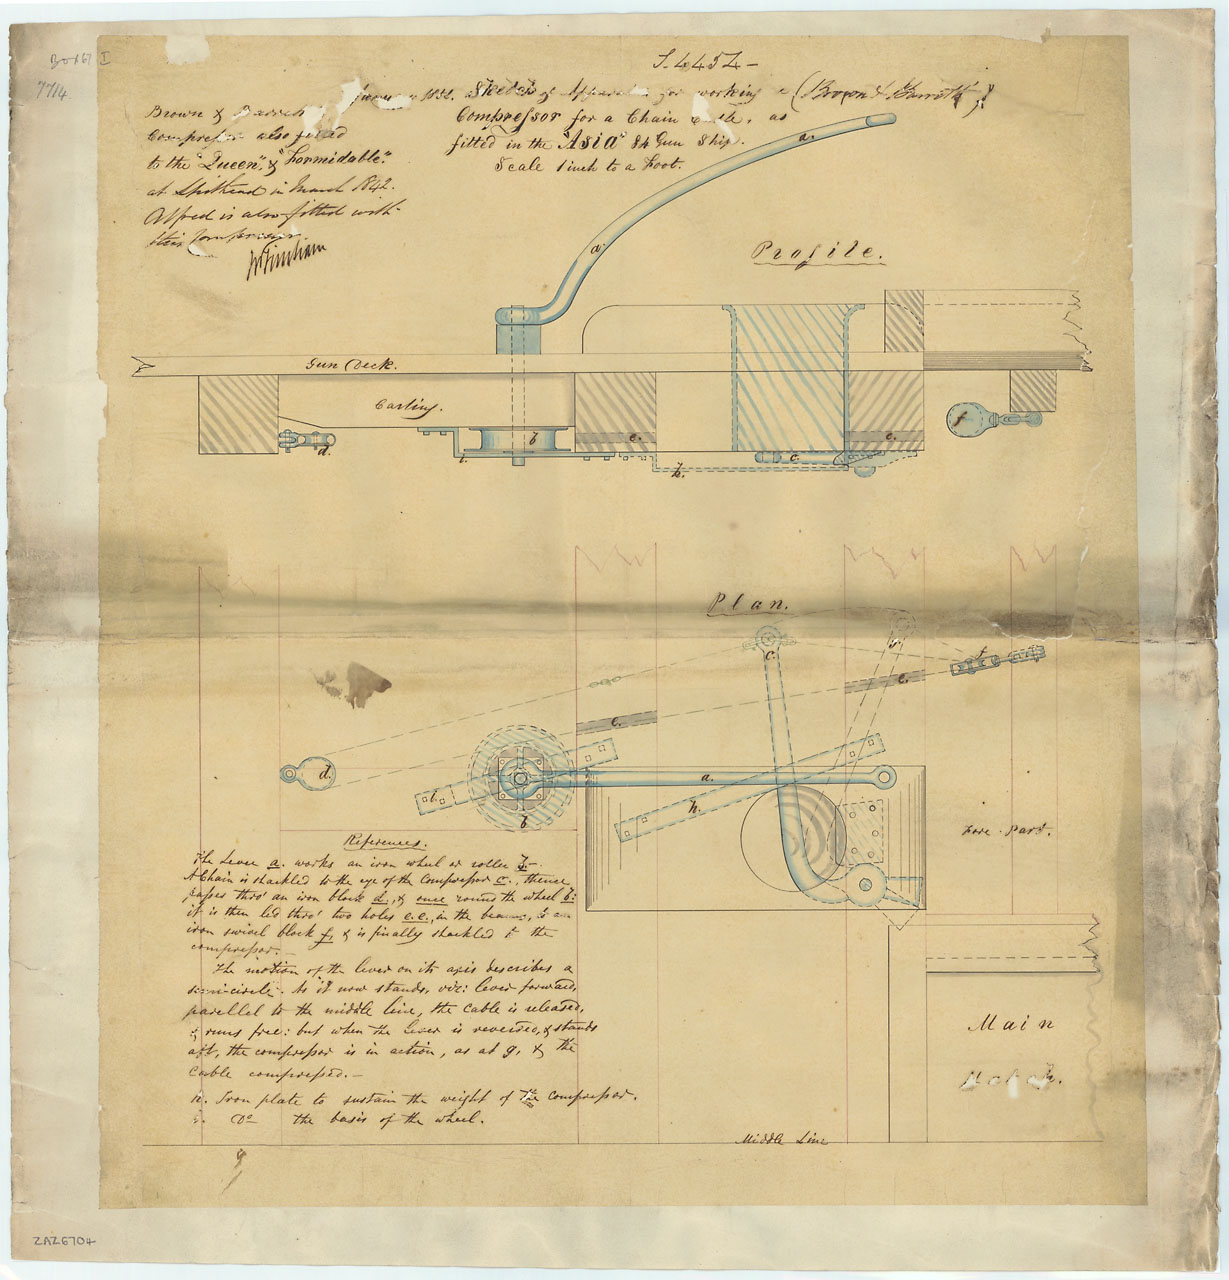 Box 67 I
7714
Brown & 
Compressor also fitted
to the "Queen", & "Formidable".
at Spithead in March 1842.
Alfred is also fitted with
this Compressor.
1832. Sketch of Apparatus for working a (Brown & Garrett's)
Compressor for a Chain Cable, as
fitted in the "Asia" 84 Gun Ship.
Scale 1 inch to a Foot.
a.
a.
Profile.
Gun Deck.
Carling.
d.
b
i.
e.
h.
c.
e.
f
Plan.
c.
g
f
e.
e.
d.
a.
i.
b
h.
Fore-Part.
References.
The Lever a. works an iron wheel or roller b.-
A Chain is shackled to the eye of the Compressor c., thence
passes thro' an iron block d., & once round the wheel b:
it is then led thro' two holes e.e., in the beams, to an
iron swivel block f, & is finally shackled to the
compressor.-
The motion of the lever on its axis describes a
semi-circle. As it now stands, viz: lever forward,
parallel to the middle line, the cable is released,
& runs free: but when the lever is reversed, & stands
aft, the compressor is in action, as at g, & the
Cable compressed.-
h. Iron plate to sustain the weight of the compressor.
i. Do the basis of the wheel.
Main
Hatch.
Middle Line
g
ZAZ6704